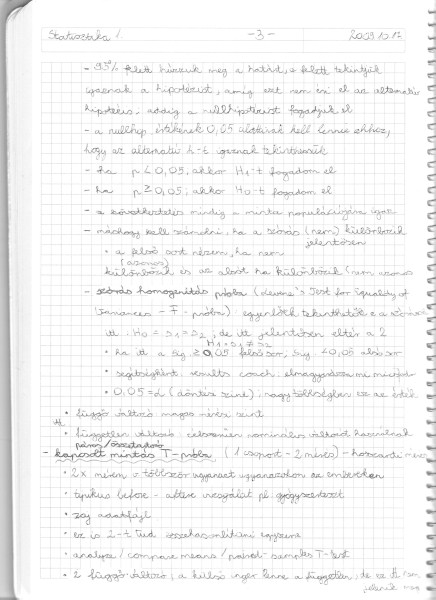 Statisztika 1. -3- 2009.10.12
- 95% felett húzzuk meg a határt, e felett tekintjük
igaznak a hipotézist, amíg ezt nem éri el az alternatív
hipotézis, addig a nullhipotézist fogadjuk el
- a nullhip. értékének 0,05 alattinak kell lennie ehhez,
hogy az alternatív h-t igaznak tekinthessük
- ha p < 0,05; akkor H1-t fogadom el
- ha p ≥ 0,05; akkor H0-t fogadom el
- a következtetés mindig a minta populációjára igaz
- máshogy kell számolni, ha a szórás (nem) különbözik
jelentősen
• a felső sort nézem, ha nem
(azonos)
különbözik és az alsót ha különbözik (nem azonos
- szórás homogenitás próba (Levene's Test for Equality of
Variances - F - próba) egyenlőek tekinthetők-e a szórások
itt: H0 = s1 = s2; de itt jelentősen eltér a 2
H1 = s1 ≠ s2
• ha itt a sig ≥ 0,05 felső sor, sig < 0,05 alsó sor
• segítségként: results coach: elmagyarázza mi micsoda
• 0,05 = α (döntési szint), nagy többségben ez az érték
• függő változó magas mérési szint
• független változó: célszerűen nominális változót használunk
páros/összetartozó
- kapcsolt mintás T-próba (1 csoport - 2 mérés) - hosszanti
• 2x mérem - többször ugyanazt ugyanazokon az embereken
• tipikus before - after vizsgálat pl gyógyszerteszt
• egy adatfájl
• ez is 2-t tud összehasonlítani egyszerre
• analyze/compare means/paired-samples T-test
• 2 függő változó; a külső inger lenne a független, de ez itt nem
jelenik meg